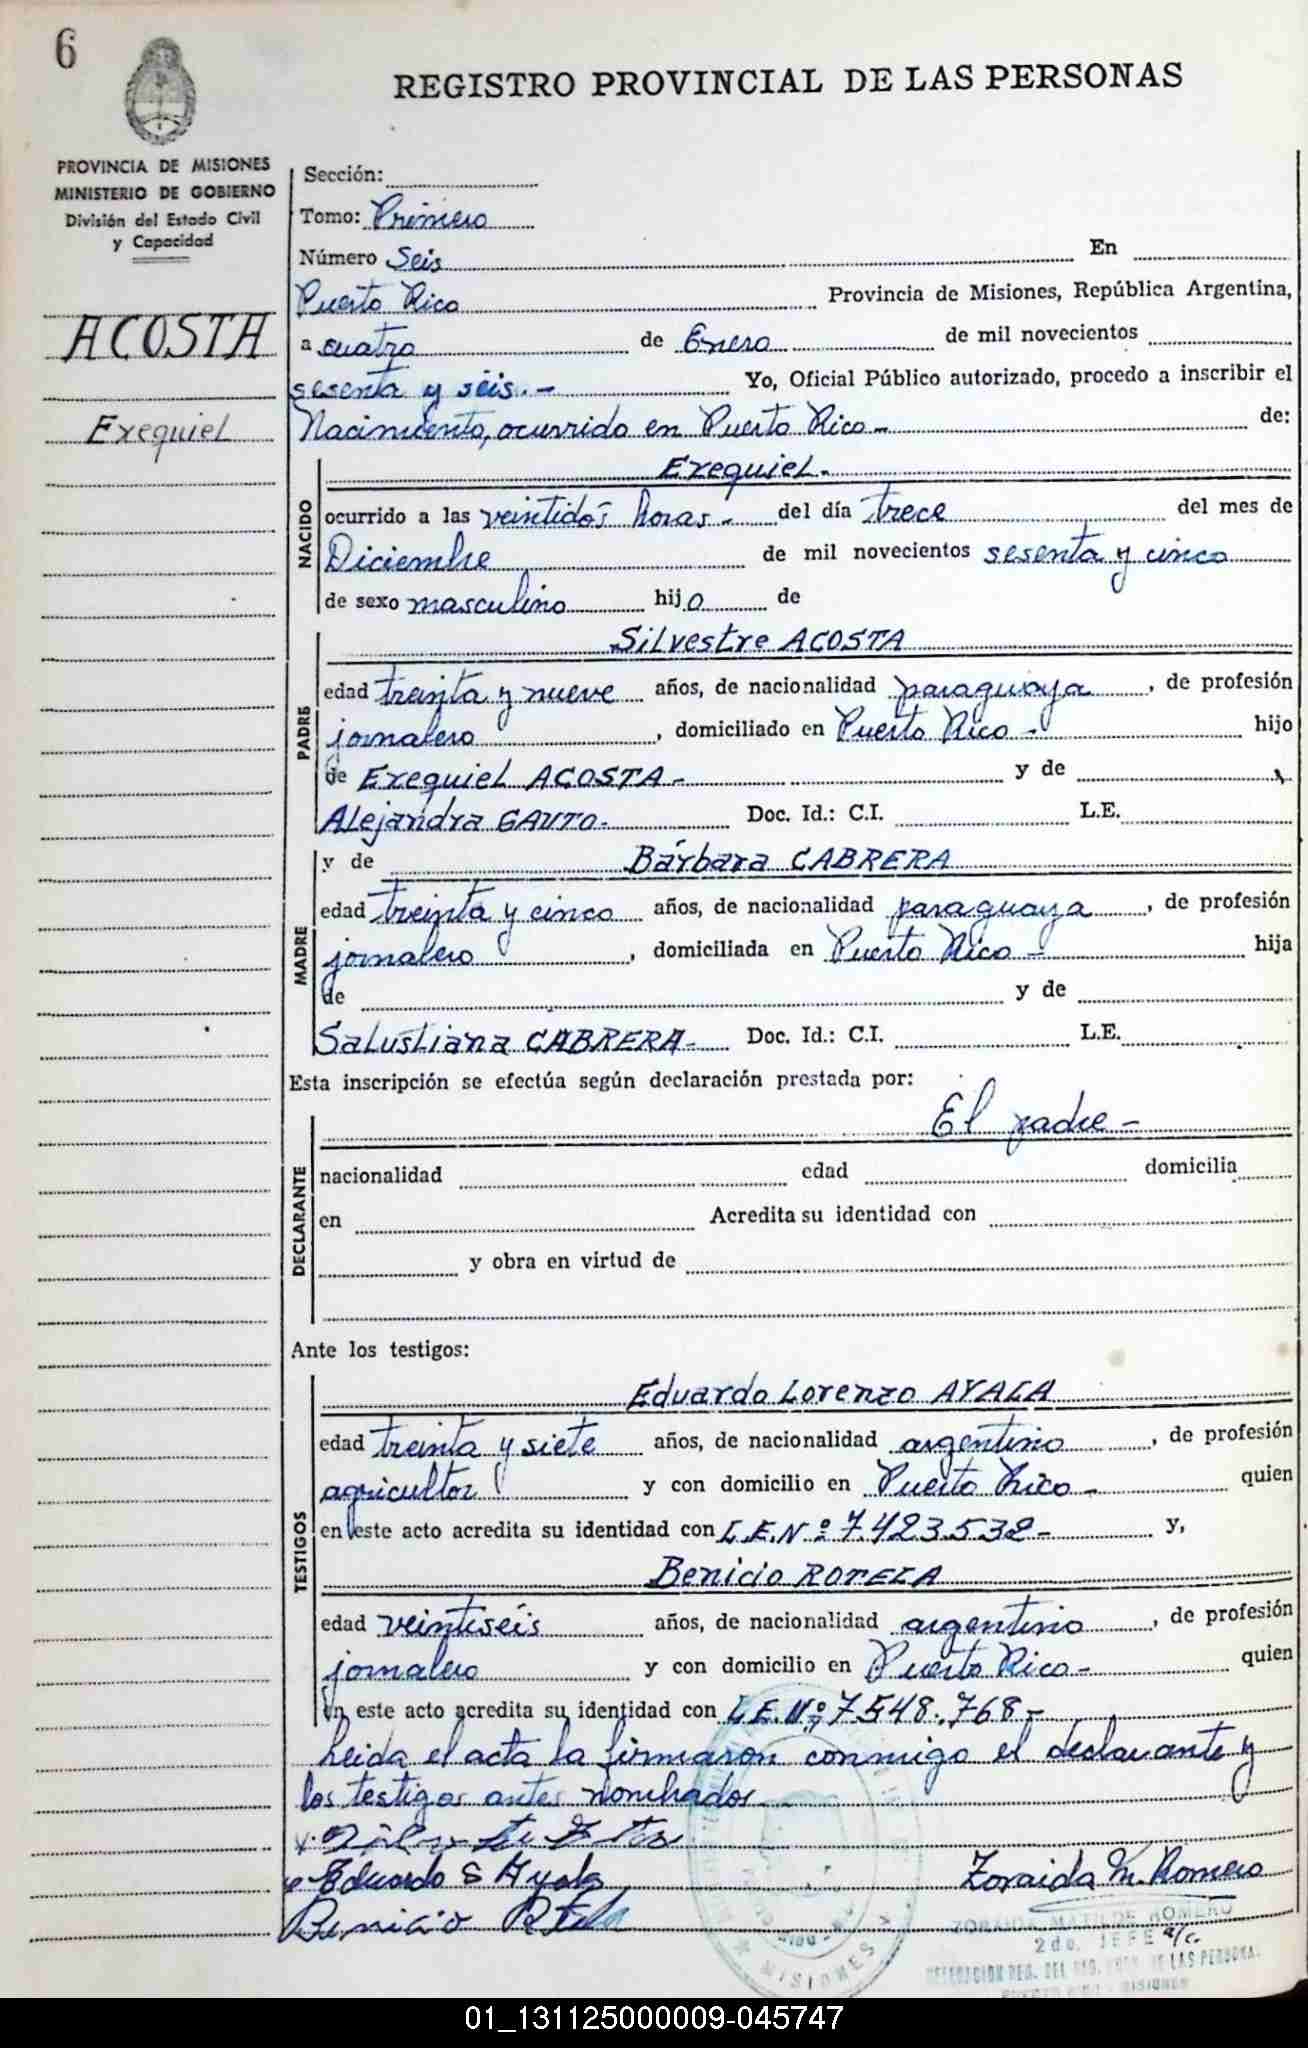 6
REGISTRO PROVINCIAL DE LAS PERSONAS
PROVINCIA DE MISIONES
MINISTERIO DE GOBIERNO
División del Estado Civil
y Capacidad
ACOSTA
Exequiel
Sección:
Tomo: Primero
Número Seis En
Puerto Rico Provincia de Misiones, República Argentina,
a cuatro de Enero de mil novecientos
sesenta y séis.- Yo, Oficial Público autorizado, procedo a inscribir el
Nacimiento, ocurrido en Puerto Rico- de:
NACIDO
Exequiel-
ocurrido a las veintidós horas- del día trece del mes de
Diciembre de mil novecientos sesenta y cinco
de sexo masculino hijo de
PADRE
Silvestre ACOSTA
edad treinta y nueve años, de nacionalidad paraguaya, de profesión
jornalero, domiciliado en Puerto Rico- hijo
de Exequiel ACOSTA- y de
Alejandra GAUTO- Doc. Id.: C.I. L.E.
MADRE
y de Bárbara CABRERA
edad treinta y cinco años, de nacionalidad paraguaya, de profesión
jornalero, domiciliada en Puerto Rico- hija
de y de
Salustiana CABRERA- Doc. Id.: C.I. L.E.
Esta inscripción se efectúa según declaración prestada por:
DECLARANTE
El padre-
nacionalidad edad domicilia
en Acredita su identidad con
y obra en virtud de
Ante los testigos:
TESTIGOS
Eduardo Lorenzo AYALA
edad treinta y siete años, de nacionalidad argentino, de profesión
agricultor y con domicilio en Puerto Rico- quien
en este acto acredita su identidad con L.E.Nº 7.423.532- y,
Benicio ROTELA
edad veintiséis años, de nacionalidad argentino, de profesión
jornalero y con domicilio en Puerto Rico- quien
en este acto acredita su identidad con L.E.Nº 7.548.768-
Leida el acta la firmaron conmigo el declarante y
los testigos antes nombrados
Eduardo L Ayala
Zoraida M. Romero
Benicio Rotela
ZORAIDA MATILDE ROMERO
2do. JEFE a/c.
MISIONES
01_131125000009-045747